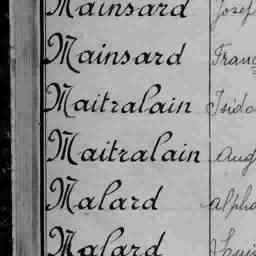 Mainsard Josep
Mainsard Franç
Maitralain Isido
Maitralain Aug
Malard alpho
Malard Louis